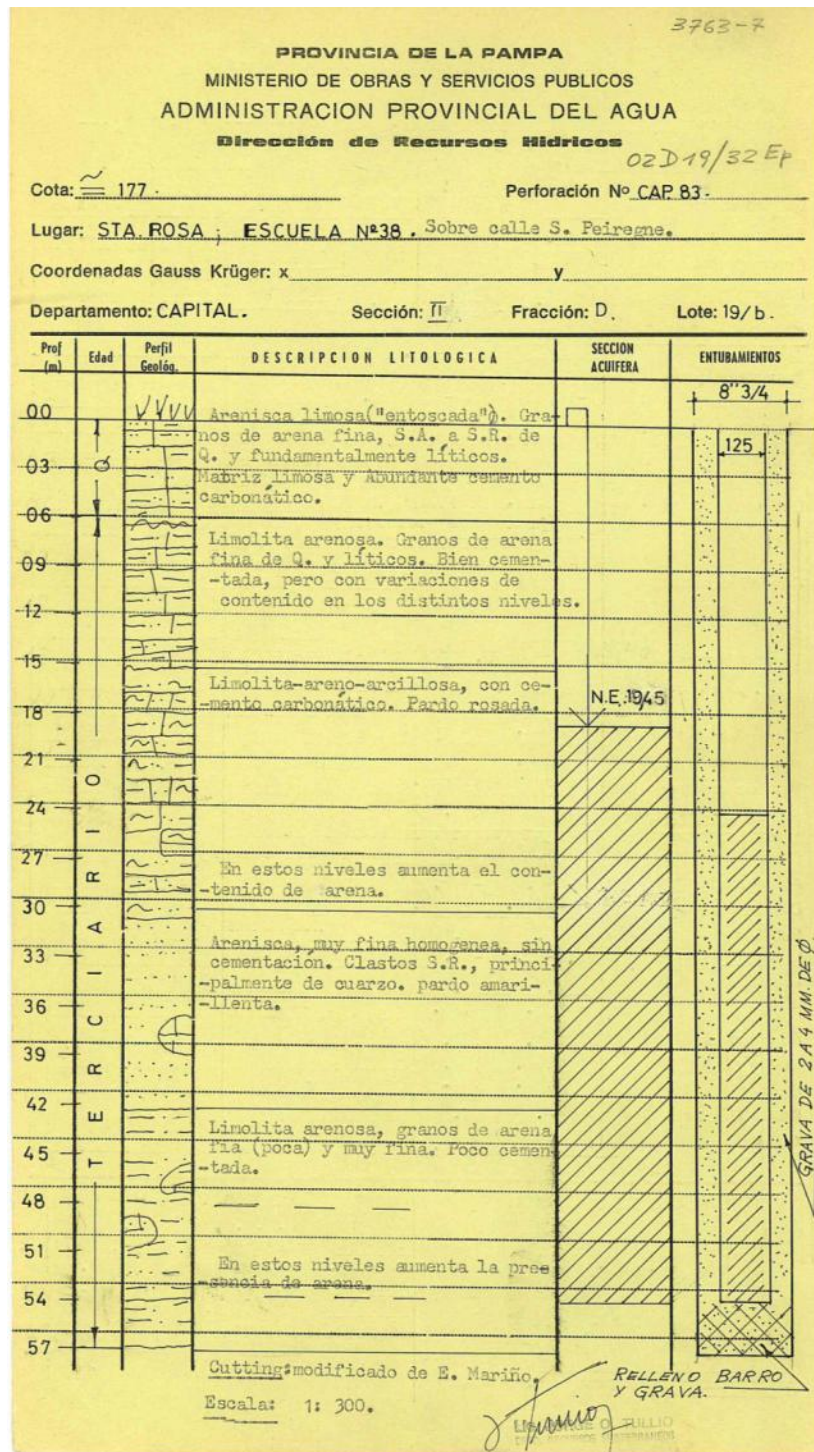 3763-7
PROVINCIA DE LA PAMPA
MINISTERIO DE OBRAS Y SERVICIOS PUBLICOS
ADMINISTRACION PROVINCIAL DEL AGUA
Dirección de Recursos Hídricos
02D19/32 Ep
Cota: ≅ 177.
Perforación Nº CAP. 83.
Lugar: STA. ROSA; ESCUELA Nº38. Sobre calle S. Peiregne.
Coordenadas Gauss Krüger: x y
Departamento: CAPITAL. Sección: II Fracción: D. Lote: 19/b.
Prof (m) Edad Perfil Geológ. DESCRIPCION LITOLOGICA SECCION ACUIFERA ENTUBAMIENTOS
8" 3/4
125
00
03
06
09
12
15
18
21
24
27
30
33
36
39
42
45
48
51
54
57
Q
TERCIARIO
Arenisca limosa("entoscada"). Gra-
nos de arena fina, S.A. a S.R. de
Q. y fundamentalmente líticos.
Matriz limosa y Abundante cemento
carbonático.
Limolita arenosa. Granos de arena
fina de Q. y líticos. Bien cemen-
-tada, pero con variaciones de
contenido en los distintos niveles.
Limolita-areno-arcillosa, con ce-
-mento carbonático. Pardo rosada.
N.E.:19,45
En estos niveles aumenta el con-
-tenido de arena.
Arenisca, muy fina homogenea, sin
cementación. Clastos S.R., princi-
-palmente de cuarzo. pardo amari-
-llenta.
Limolita arenosa, granos de arena
fia (poca) y muy fina. Poco cemen-
-tada.
En estos niveles aumenta la pree
-sencia de arena.
GRAVA DE 2 A 4 MM. DE Ø
RELLENO BARRO
Y GRAVA.
Cutting:modificado de E. Mariño.
Escala: 1: 300.
O. TULLIO